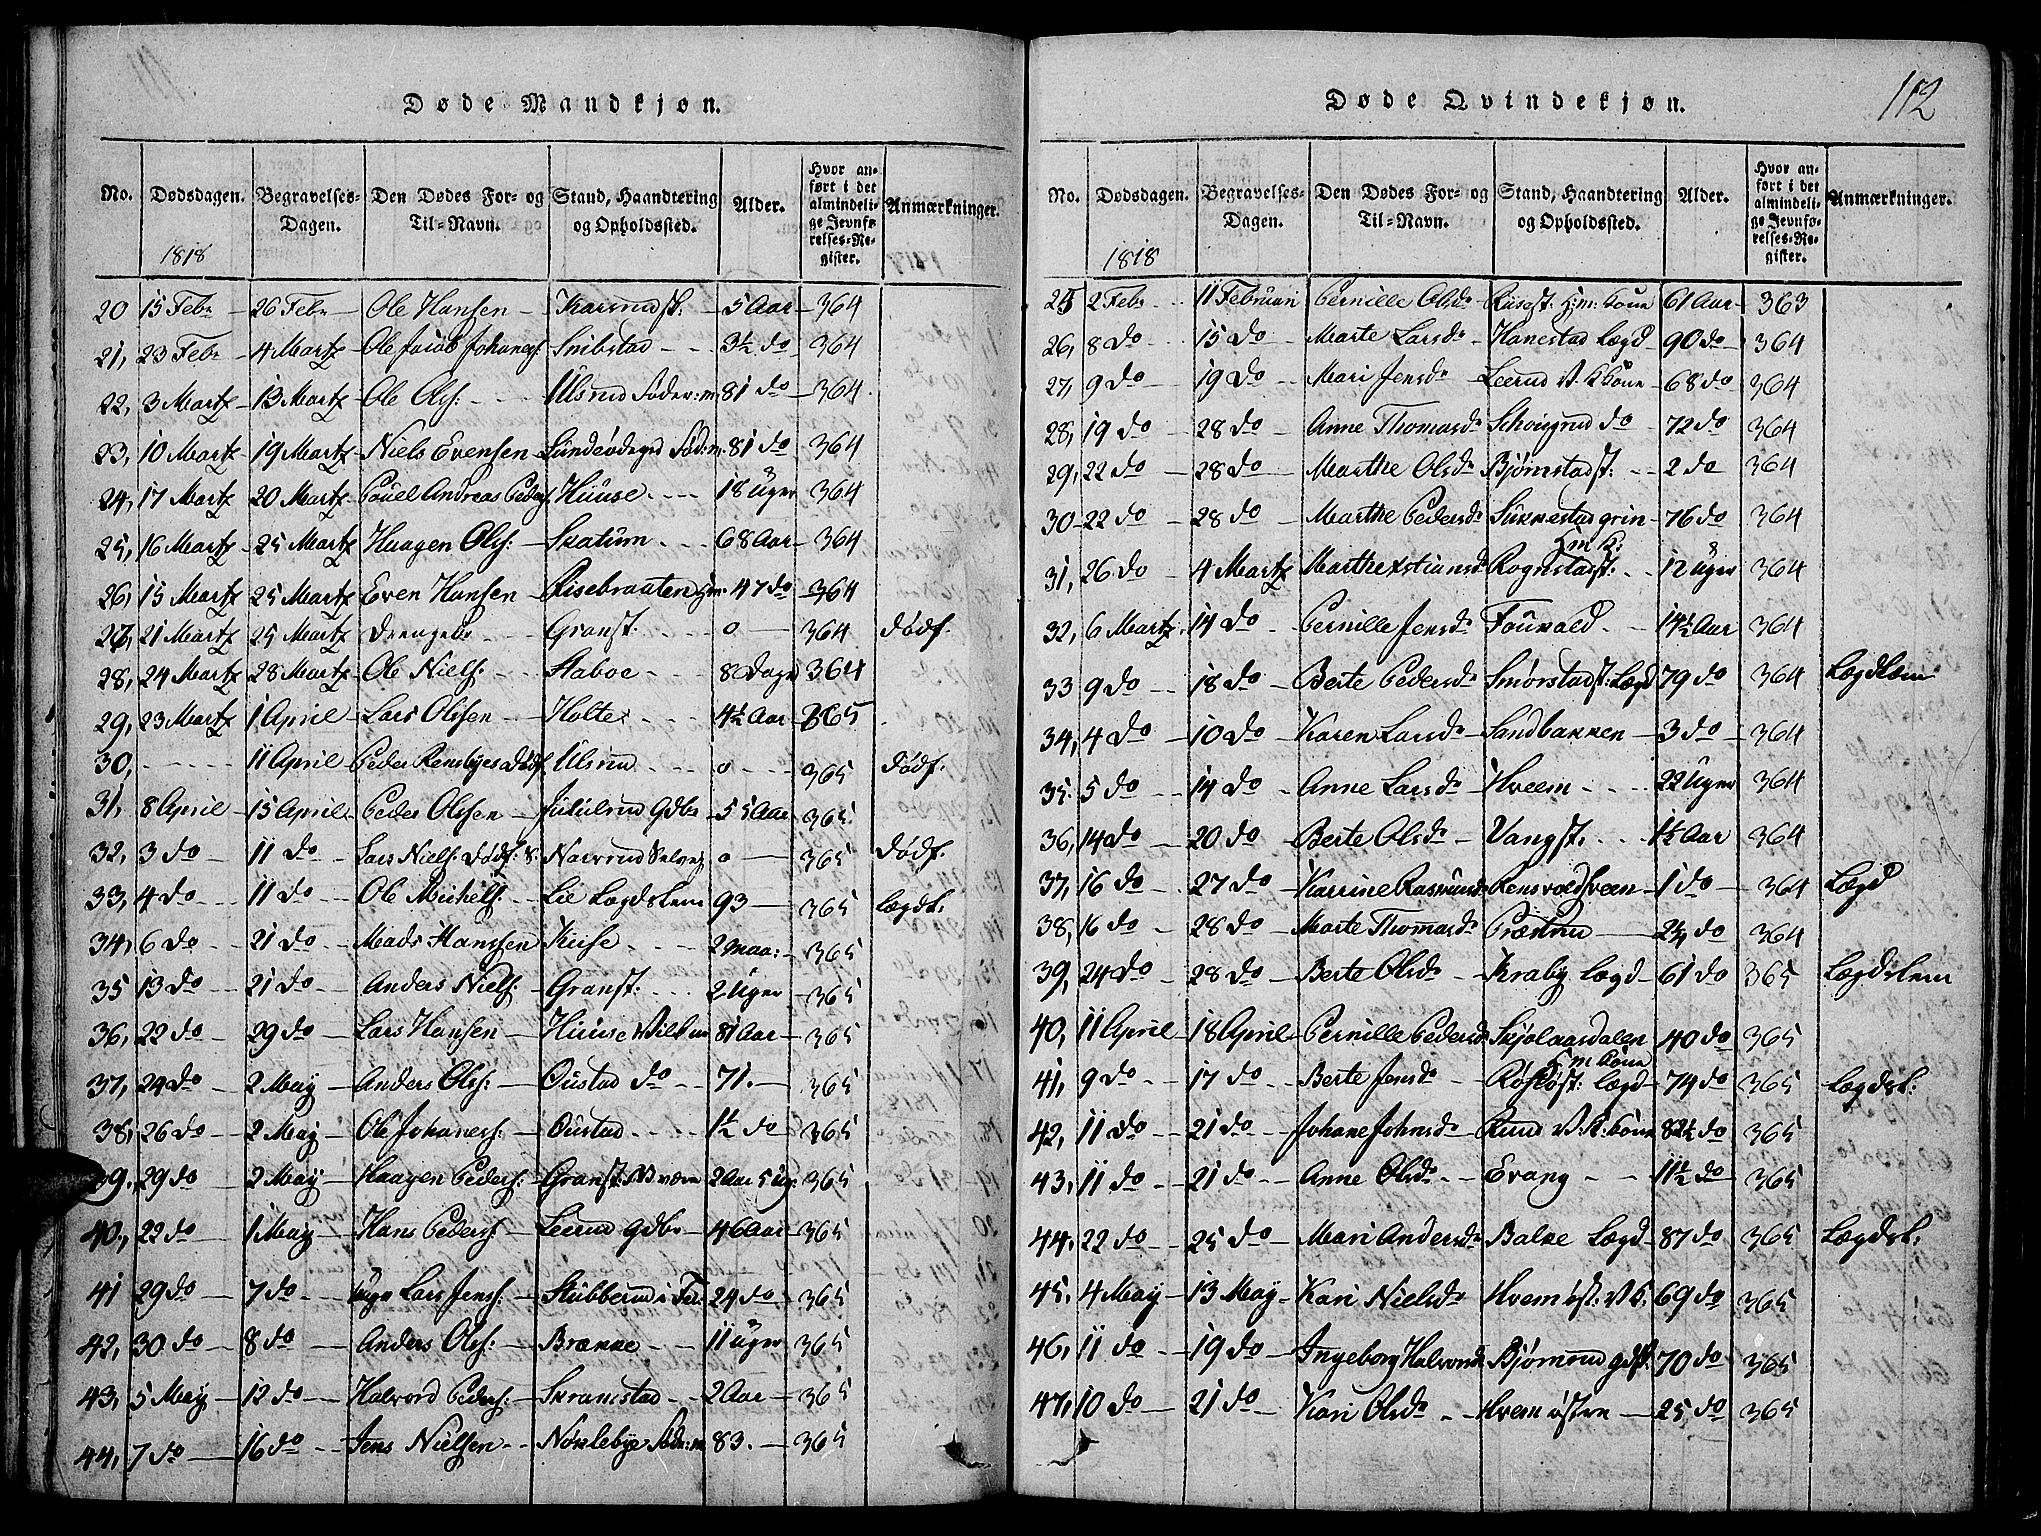 Døde Mandkjøn.
No. Dødsdagen. Begravelses-Dagen. Den Dødes For- og Til-Navn. Stand, Haandtering og Opholdssted. Alder. Hvor anført i det almindelige Jevnførelses-Register. Anmærkninger.
1818
20 15 Febr 26 Febr Ole Hansen Karrudst: 5 Aar 364
21, 23 Febr 4 Martz Ole Jacob Johanes: Snibstad 3½ do 364
22, 3 Martz 13 Martz Ole Ols: Ulsrud Føder:m: 81 do 364
23, 10 Martz 19 Martz Niels Evensen 81 do 364
24, 17 Martz 20 Martz Povel Andreas Peders: Huuse 18 Uger 364
25, 16 Martz 25 Martz Haagen Ols: Skatum 68 Aar 364
26, 15 Martz 25 Martz Even Hansen Risebraaten 47 do 364
27, 21 Martz 25 Martz Drengebr Granst: 0 364 dødf.
28, 24 Martz 28 Martz Ole Niels: Staboe 8 Dage 364
29, 23 Martz 1 April Lars Olssen Holte 4½ Aar 365
30, 11 April Peder dødf Ulsrud 0 365 Dødf.
31, 8 April 15 April Peder Olssen Jutulrud Gdbr 55 Aar 365
32, 3 do 11 do Lars Niels: Dødf: S: 0 365 Dødf.
33, 4 do 11 do Ole Michels: Lie Lægdslem 93 365 Lægdsl.
34, 6 do 21 do Mads Hanssen Kiise 2 maa: 365
35 13 do 21 do Anders Niels: Granst: 2 Uger 365
36, 22 do 29 do Lars Hansen Huuse 81 Aar 365
37, 24 do 2 May Anders Ols: Oustad do 71. 365
38, 26 do 2 May Ole Johanes: Oustad 1½ do 365
39, 29 do 2 May Haagen Peders: Granst: 2 Aar 5 Ug: 365
40, 22 do 1 May Hans Peders: Leerud Gdbr 46 Aar 365
41 29 do 7 do Lars Jens: Stubberud 24 do 365
42, 30 do 8 do Anders Ols: Brænne 11 Uger 365
43, 5 May 12 do Halvord Peders: Skramstad 2 Aar 365
44, 7 do 16 do Jens Nielsen Nørlebye Føder:m 83. 365
Døde Qvindekjøn. 112
No. Dødsdagen. Begravelses-Dagen. Den Dødes For- og Til-Navn. Stand, Haandtering og Opholdssted. Alder. Hvor anført i det almindelige Jevnførelses-Register. Anmærkninger.
1818
25 2 Febr 11 Februari Pernille Olsdr Riisest: H:m: Kone 61 Aar 363
26, 8 do 15 do Marte Larsdr Hanestad Lægd 90 do 364
27, 9 do 19 do Mari Jensdr Leerud V: K Kone 68 do 364
28, 19 do 28 do Anne Thomasdr do 72 do 364
29, 22 do 28 do Marthe Olsdr Bjørnstadst: 2 do 364
30 22 do 28 do Marthe Pedersdr 76 do 364
Hm K:
31, 26 do 4 Martz Marthe Rognstadst: 12 Uger 364
32, 6 Martz 14 do Pernille Jensdr Fourald 14½ Aar 364
33 9 do 18 do Berte Pedersdr Smørstadst: Lægd 79 do 364 Lægdslem
34, 4 do 10 do Karen Larsdr Sandbakken 3 do 364
35. 5 do 14 do Anne Larsdr Hveem 22 Uger 364
36, 14 do 20 do Berte Olsdr Vangst. 1½ Aar 364
37, 16 do 27 do Karrine Rasmusdr 1 do 364 Lægd
38, 16 do 28 do Marte Thomasdr Præstrud 2¼ do 364
39, 24 do 28 do Berte Olsdr Kraby Lægd 61 do 365 Lægdslem
40, 11 April 18 April Pernille Pedersdr Skjølaasdalen 40 do 365
Hm Kone
41, 9 do 17 do Berte Jensdr Lægd 74 do 365 Lægdsl:
42, 11 do 21 do Johane Johnsdr Ruud V: K: Kone 82½ do 365
43, 11 do 21 do Anne Olsdr Evang 11½ do 365
44, 22 do 25 do Mari Andersdr Balke Lægd 87 do 365 Lægdsl.
45, 4 May 13 May Kari Nielsdr Hvem øst: V K: 69 do 365
46, 11 do 19 do Ingeborg Halvorsdr Bjørnerud 70 do 365
47, 10 do 21 do Kari Olsdr Hvem østre 25 do 365